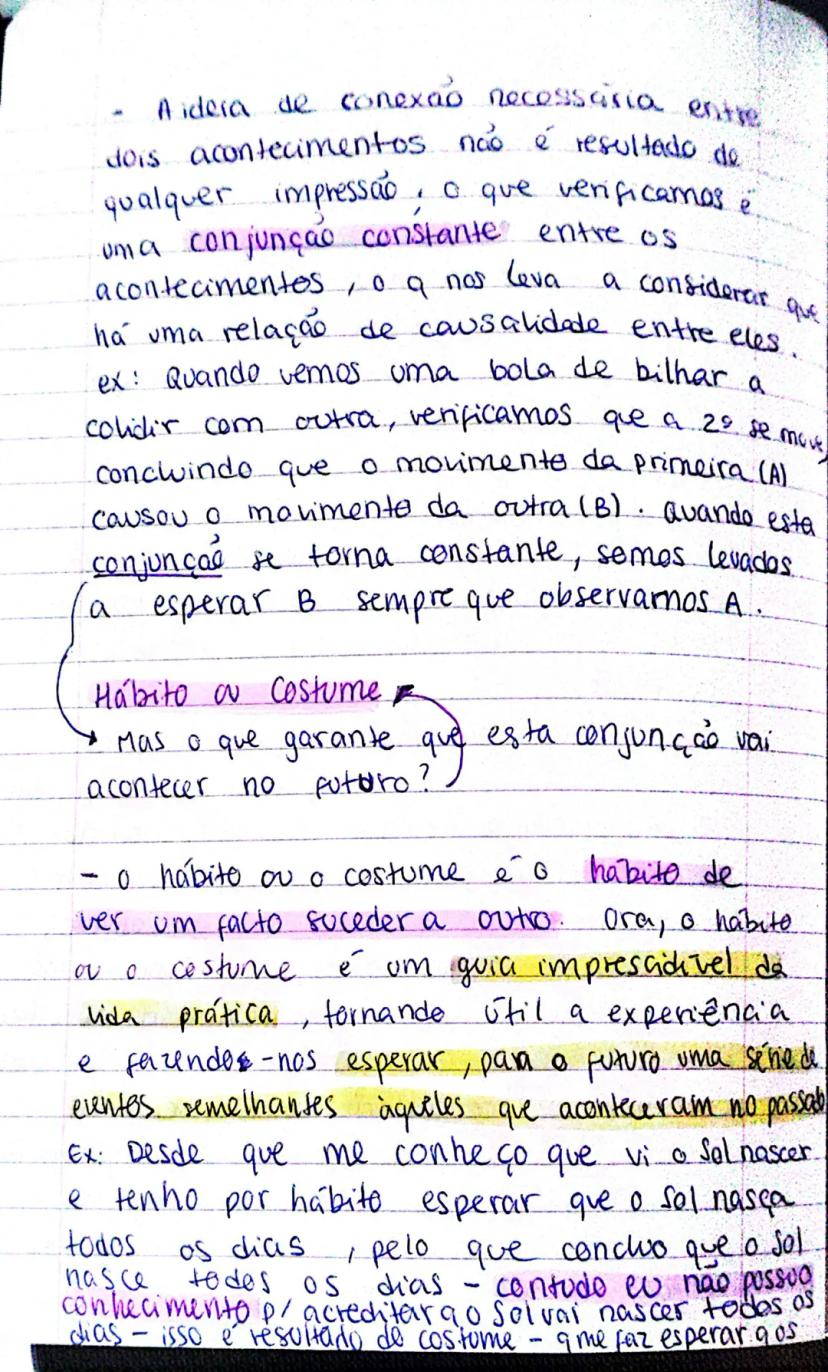 - A ideia de conexão necessária entre
dois acontecimentos não é resultado de
qualquer impressão, o que verificamos é
uma conjunção constante entre os
acontecimentos, o q nos leva a considerar que
há uma relação de causalidade entre eles.
ex: Quando vemos uma bola de bilhar a
colidir com outra, verificamos que a 2º se move,
concluindo que o movimento da primeira (A)
causou o movimento da outra (B). Quando esta
conjunção se torna constante, somos levados
a esperar B sempre que observamos A.
Hábito ou Costume
Mas o que garante que esta conjunção vai
acontecer no futuro?
- O hábito ou o costume é o hábito de
ver um facto suceder a outro. Ora, o hábito
ou o costume é um guia imprescidível da
vida prática, tornando útil a experiência
e fazendo-nos esperar, para o futuro uma série de
eventos semelhantes àqueles que aconteceram no passado
Ex: Desde que me conheço que vi o Sol nascer
e tenho por hábito esperar que o Sol nasça
todos os dias, pelo que concluo que o Sol
nasce todos os dias - contudo eu não possuo
conhecimento p/ acreditar q o Sol vai nascer todos os
dias - isso é resultado do costume - q me faz esperar q os